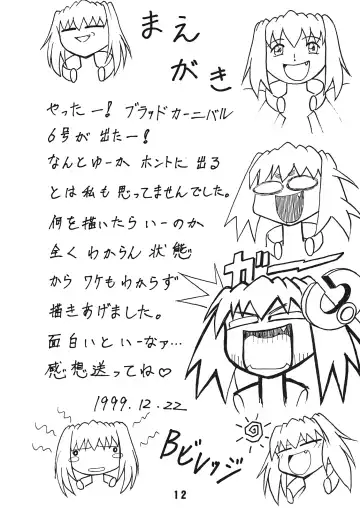 まえがき
やったー! ブラッドカーニバル
6号が出たー!
なんとゆーか ホントに出る
とは私も思ってませんでした。
何を描いたらいーのか
全くわからん状態
から ワケもわからず
描きあげました。
面白いといーなァ…
感想送ってね♡
1999.12.22
ガーー
Bビレッジ
12